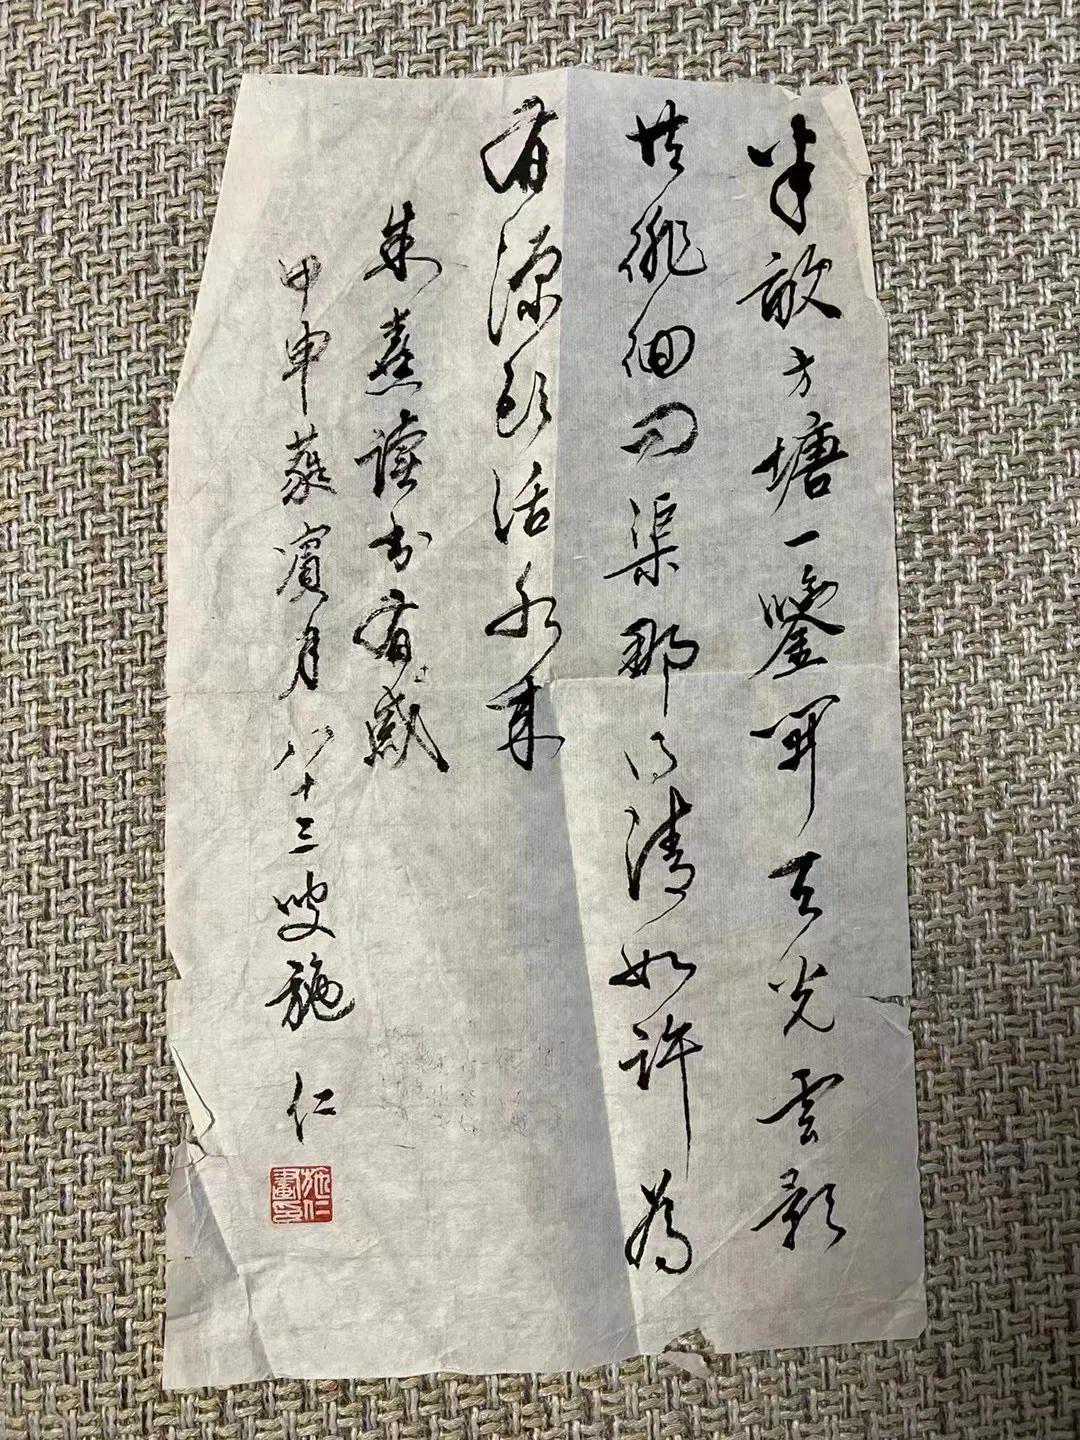 半畝方塘一鑒開天光雲影
共徘徊问渠那得清如许為
有源头活水来
朱熹读书有感
甲申蕤賓月八十三叟施仁
施仁畫印